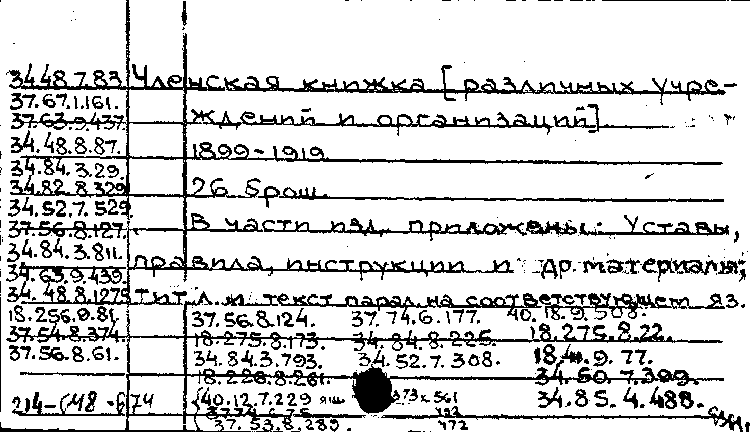 34.48.7.83 Членская книжка [различных учре-
37.67.1.161.
37.63.9.437. ждений и организаций]
34.48.8.87. 1899-1919
34.84.3.29.
34.82.8.329 26 брош.
34.52.7.529.
37.56.8.127. В части изд. приложены: Уставы,
34.84.3.811. правила, инструкции и др. материалы;
34.63.9.439.
34.48.8.1275 Тит. л. и текст парал. на соответствующем яз.
18.256.9.81. 37.56.8.124. 37.74.6.177. 40.18.9.508.
37.54.8.374. 18.275.8.173. 34.84.8.225. 18.275.8.22.
37.56.8.61. 34.84.3.793. 34.52.7.308. 9.77.
18.228.8.261. 34.60.7.399.
40.12.7.229 34.85.4.488.
37.53.8.289. 472